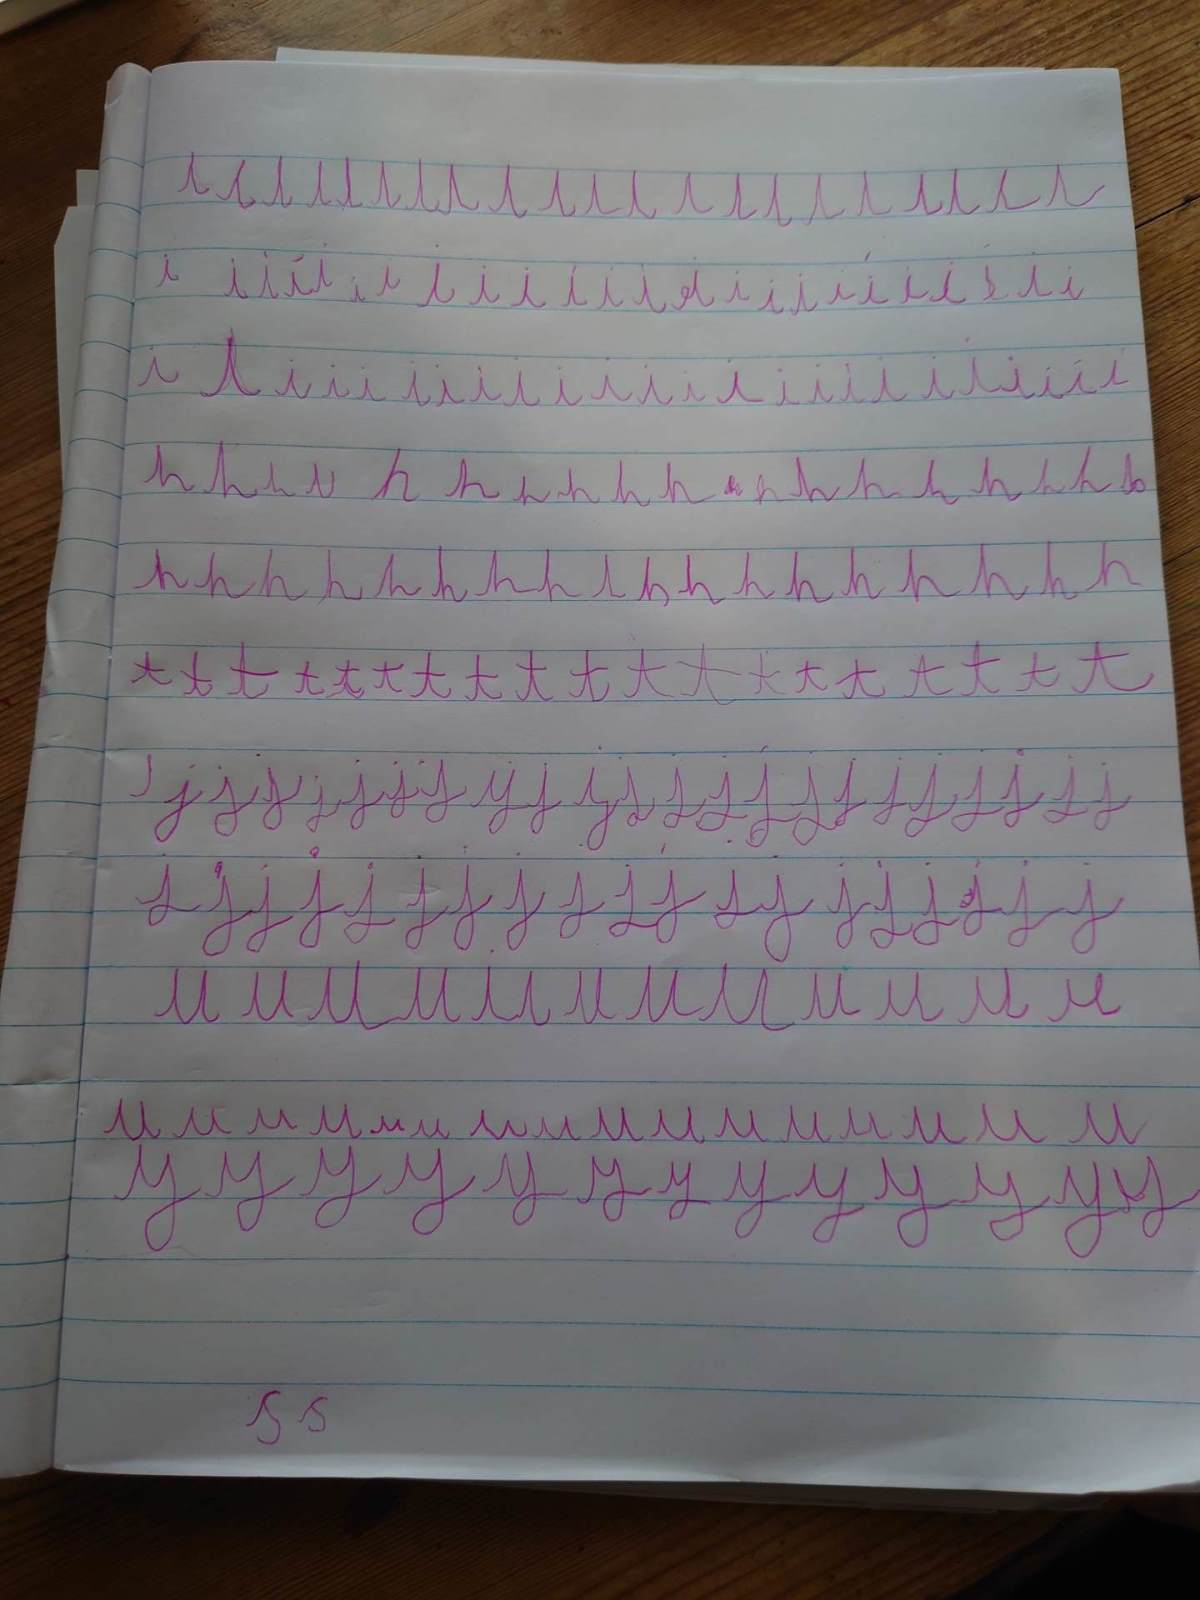 ı ı ı ı ı ı ı ı ı ı ı ı ı ı ı ı ı ı ı ı ı ı
i i i i i i i i i i i i i i i i i i i i i i i i i
i i i i i i i i i i i i i i i i i i i i i i i i
h h h h h h h h h h h h h h h h h h
h h h h h h h h h h h h h h h h h h
t t t t t t t t t t t t t t t t t t t
j j j j j j j j j j j j j j j j j j j j j j j
j j j j j j j j j j j j j j j j j j j
u u u u u u u u u u u u
u u u u u u u u u u u u u u u u
y y y y y y y y y y y y y
s s